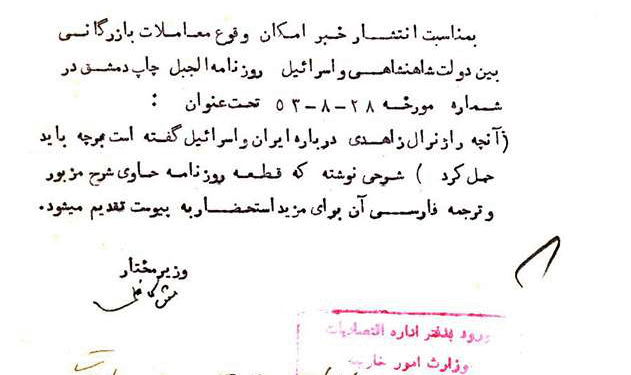 بمناسبت انتشار خبر امکان وقوع معاملات بازرگانی
بین دولت شاهنشاهی و اسرائیل روزنامه الجبل چاپ دمشق در
شماره مورخه ۲۸-۸-۵۳ تحت عنوان :
(آنچه را ژنرال زاهدی درباره ایران و اسرائیل گفته است برچه باید
حمل کرد ) شرحی نوشته که قطعه روزنامه حاوی شرح مزبور
و ترجمه فارسی آن برای مزید استحضار به پیوست تقدیم میشود.
وزیر مختار
ورود بدفتر اداره اقتصادیات
وزارت امور خارجه